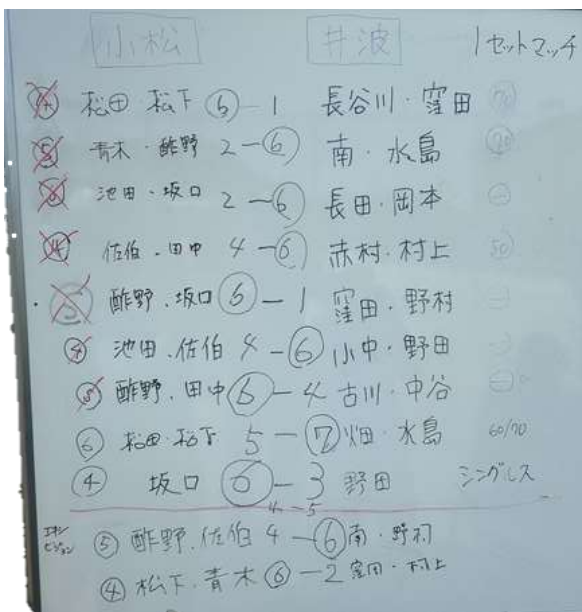 小松 井波 1セットマッチ
④ 松田 松下 ⑥-1 長谷川・窪田 70
⑤ 青木・酢野 2-⑥ 南・水島 70
⑥ 池田・坂口 2-⑥ 長田・岡本 一
④ 佐伯・田中 4-⑥ 赤村・村上 50
5 酢野・坂口 ⑥-1 窪田・野村 一
④ 池田・佐伯 4-⑥ 小中・野田 一
⑤ 酢野・田中 ⑥-4 古川・中谷 一
⑥ 松田・松下 5-⑦ 畑・水島 60/70
④ 坂口 ⑥-3 野田 シングルス
4-5
エキシビジョン ⑤ 酢野・佐伯 4-⑥ 南・野村
④ 松下・青木 ⑥-2 窪田・村上